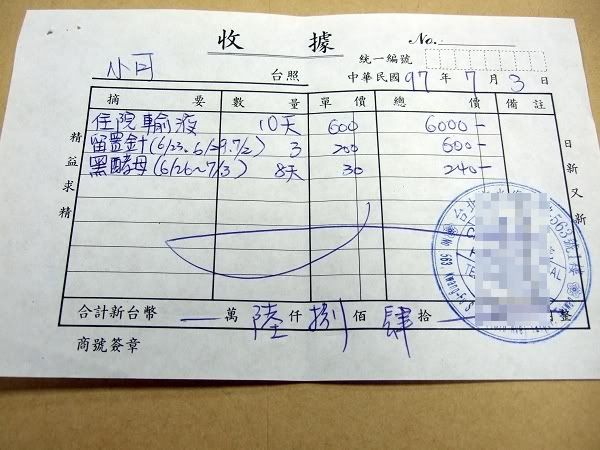 收據 No.
統一編號
小可 台照 中華民國 97 年 7 月 3 日
摘要 數量 單價 總價 備註
住院輸液 10天 600 6000-
留置針(6/23、6/29、7/2) 3 200 600-
黑酵母(6/26~7/3) 8天 30 240-
精益求精
日新又新
合計新台幣 — 萬 陸 仟 捌 佰 肆 拾 — 整
商號簽章